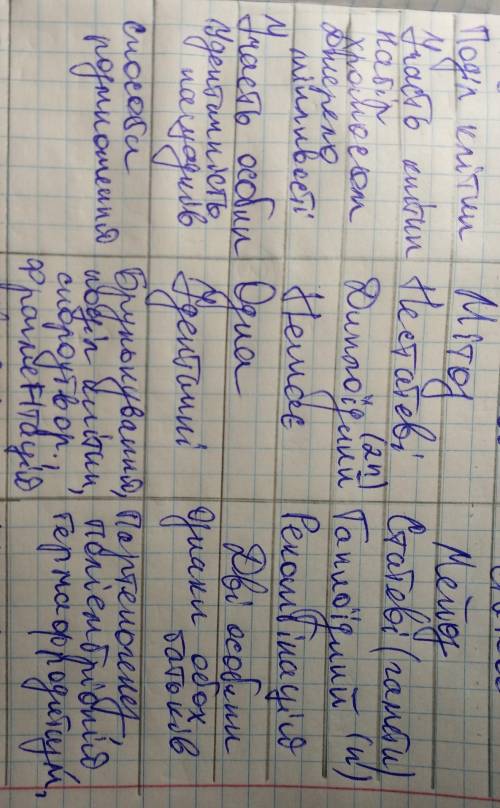 Поділ клітин Мітоз Мейоз
Участь клітин Нестатеві Статеві (гамети)
Набір
хромосом Диплоїдний (2n) Гаплоїдний (n)
Джерело
мінливості Немає Рекомбінація
Участь особин Одна Дві особини
Ідентичність
нащадків Ідентичні Ознаки обох
батьків
Способи
розмноження
Брунькування,
поділ клітин,
спороутвор.
Фрагментація
Партеногенез
поліембріонія
гермафродитизм,